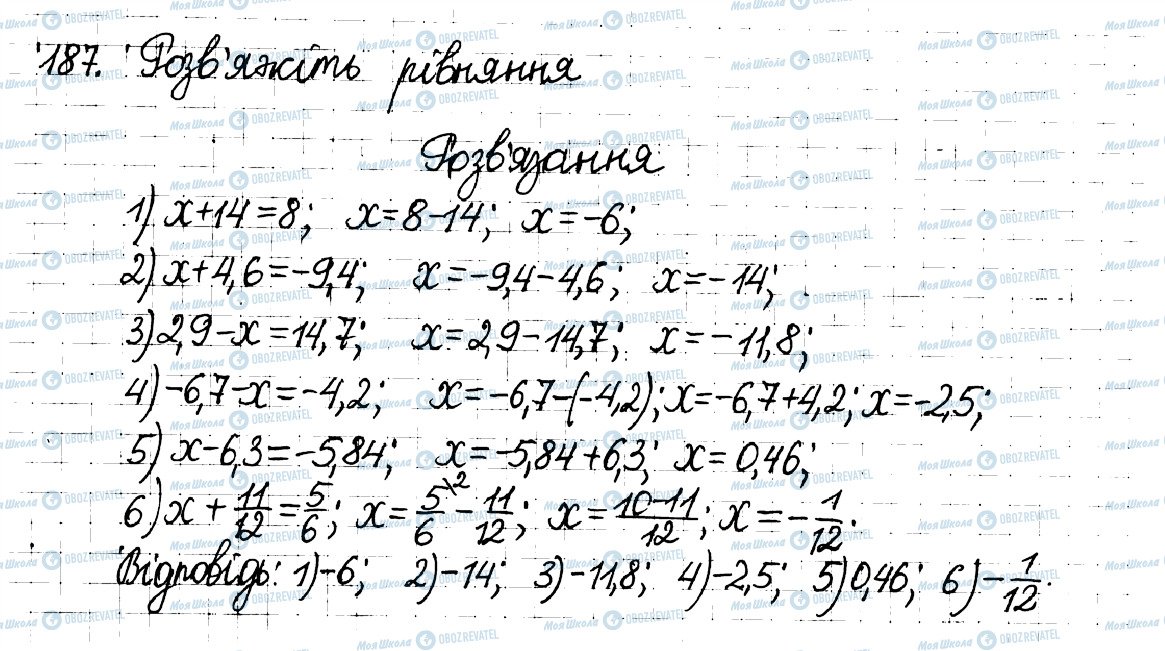 187. Розв'яжіть рівняння
Розв'язання
1) x+14=8; x=8-14; x=-6;
2) x+4,6=-9,4; x=-9,4-4,6; x=-14;
3) 2,9-x=14,7; x=2,9-14,7; x=-11,8;
4) -6,7-x=-4,2; x=-6,7-(-4,2); x=-6,7+4,2; x=-2,5;
5) x-6,3=-5,84; x=-5,84+6,3; x=0,46;
6) x+11/12=5/6; x=5\2/6-11/12; x=10-11/12; x=-1/12.
Відповідь: 1)-6; 2)-14; 3)-11,8; 4)-2,5; 5)0,46; 6)-1/12.